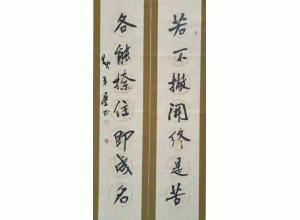 若不撇開終是苦
各能捺住即成名